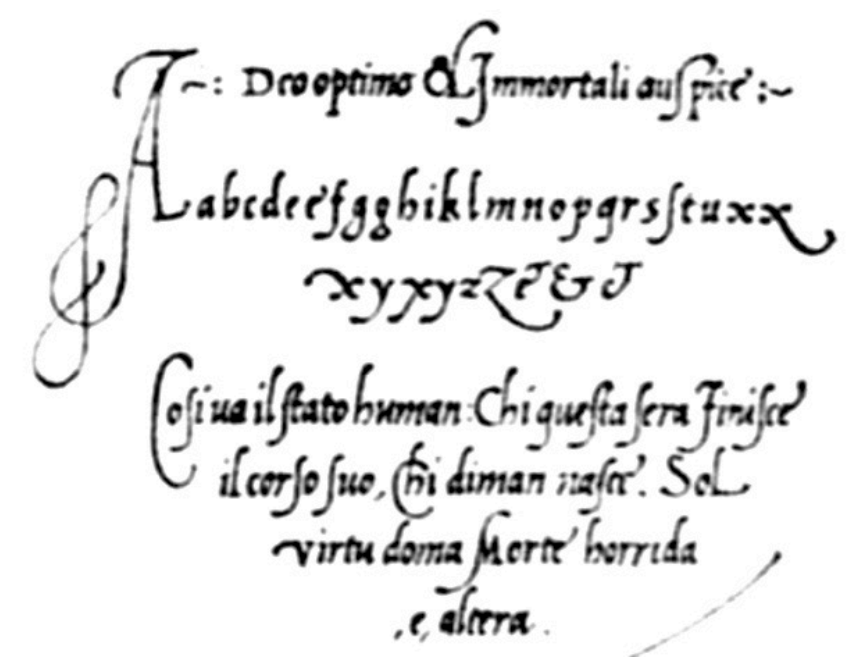 ~: Deo optimo & Immortali auſpice :~
A a b c d e e f g g h i k l m n o p q r s ſ t u x x
x y x y z Z & & &
Coſi ua il ſtato human: Chi queſta ſera Finiſce
il corſo ſuo, Chi diman naſce. Sol
virtu doma Morte horrida
, e, altera.